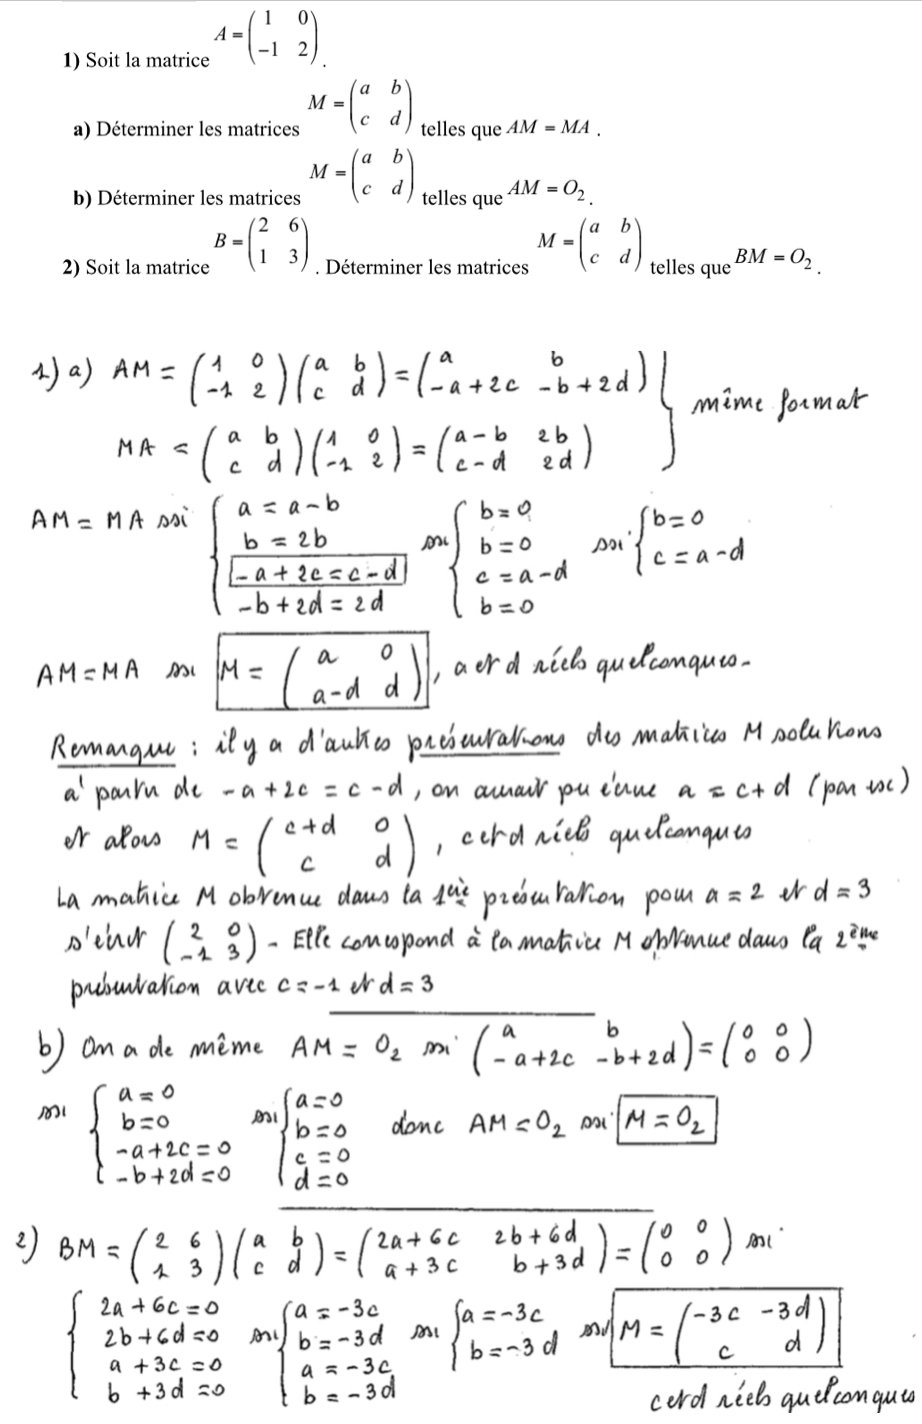 1) Soit la matrice A = (1 0 ; -1 2) .
a) Déterminer les matrices M = (a b ; c d) telles que AM = MA .
b) Déterminer les matrices M = (a b ; c d) telles que AM = O₂ .
2) Soit la matrice B = (2 6 ; 1 3) . Déterminer les matrices M = (a b ; c d) telles que BM = O₂ .
1) a) AM = (1 0 ; -1 2) (a b ; c d) = (a b ; -a+2c -b+2d) } même format
MA = (a b ; c d) (1 0 ; -1 2) = (a-b 2b ; c-d 2d)
AM = MA ssi { a = a-b ; b = 2b ; -a+2c = c-d ; -b+2d = 2d ssi { b=0 ; b=0 ; c = a-d ; b=0 ssi { b=0 ; c = a-d
AM = MA ssi M = (a 0 ; a-d d) , a et d réels quelconques.
Remarque : il y a d'autres présentations des matrices M solutions
à partir de -a+2c = c-d, on aurait pu écrire a = c+d (par ex)
et alors M = (c+d 0 ; c d) , c et d réels quelconques
La matrice M obtenue dans la 1ère présentation pour a = 2 et d = 3
s'écrit (2 0 ; -1 3) - Elle correspond à la matrice M obtenue dans la 2ème
présentation avec c = -1 et d = 3
b) On a de même AM = O₂ ssi (a b ; -a+2c -b+2d) = (0 0 ; 0 0)
ssi { a=0 ; b=0 ; -a+2c=0 ; -b+2d=0 ssi { a=0 ; b=0 ; c=0 ; d=0 donc AM = O₂ ssi M = O₂
2) BM = (2 6 ; 1 3) (a b ; c d) = (2a+6c 2b+6d ; a+3c b+3d) = (0 0 ; 0 0) ssi
{ 2a+6c=0 ; 2b+6d=0 ; a+3c=0 ; b+3d=0 ssi { a=-3c ; b=-3d ; a=-3c ; b=-3d ssi { a=-3c ; b=-3d ssi M = (-3c -3d ; c d)
c et d réels quelconques